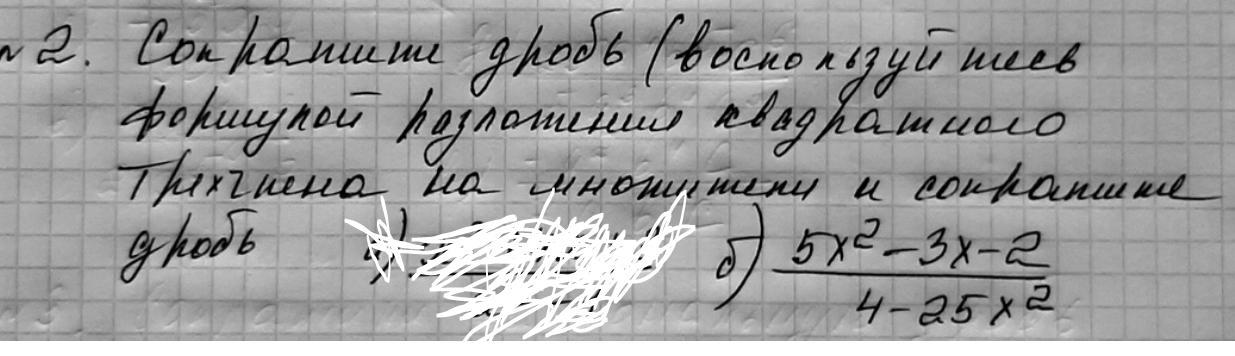 №2. Сократите дробь (воспользуйтесь
формулой разложения квадратного
трехчлена на множители и сократите
дробь б) 5x² - 3x - 2 / 4 - 25x²